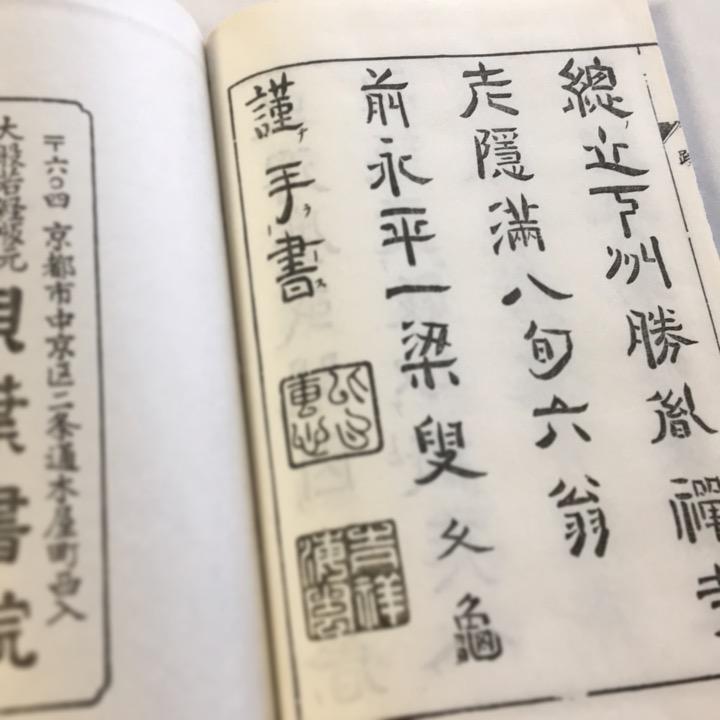 總ノ之下州勝胤禪寺
老隱滿八旬六翁
前永平一梁叟 龜
謹テ手ラ書ス
吉祥
〒六〇四 京都市中京区二条通木屋町西入
大般若経版元
貝葉書院